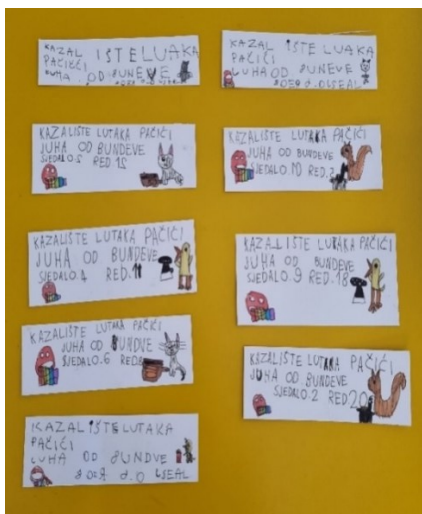 KAZAL IŠTELUAKA
PAČIĆI
JUHA OD BUNEVE
KAZAL IŠTE LUAKA
PAČIĆI
JUHA OD BUNEVE
KAZALIŠTE LUTAKA PAČIĆI
JUHA OD BUNDEVE
SJEDALO.5 RED 15
KAZALIŠTE LUTAKA PAČIĆI
JUHA OD BUNDEVE
SJEDALO.10 RED.2
KAZALIŠTE LUTAKA PAČIĆI
JUHA OD BUNDEVE
SJEDALO.4 RED.11
KAZALIŠTE LUTAKA PAČIĆI
JUHA OD BUNDEVE
SJEDALO.9 RED.18
KAZALIŠTE LUTAKA PAČIĆI
JUHA OD BUNDVE
SJEDALO.6 RED
KAZALIŠTE LUTAKA PAČIĆI
JUHA OD BUNDEVE
SJEDALO.2 RED.20
KAZALIŠTELUTAKA
PAČIĆI
JUHA OD BUNDVE